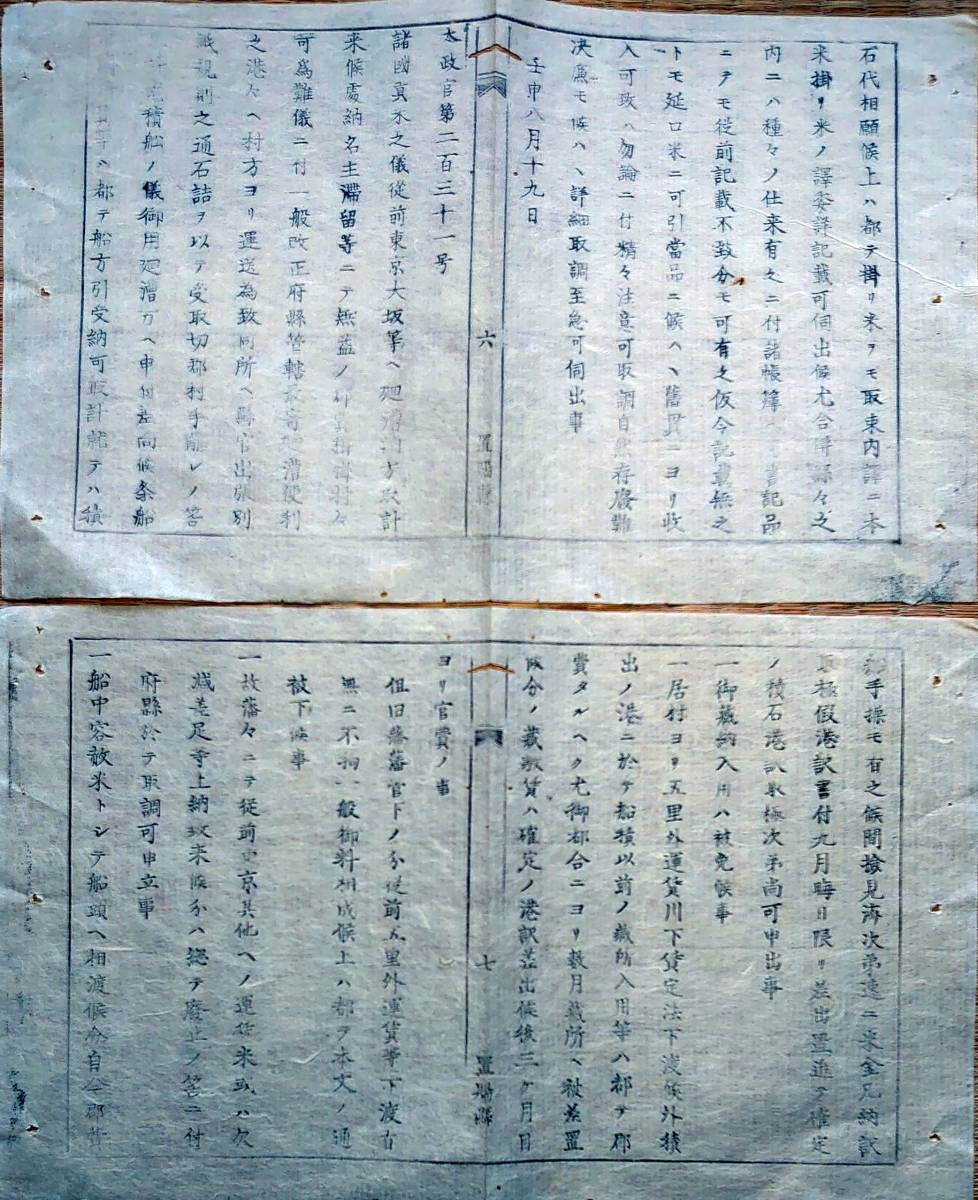 石代相願候上ハ都テ掛リ米ヲモ取束内譯ニ本
米掛リ米ノ譯委詳記載可伺出候尤合併縣々之
内ニハ種々ノ仕来有之ニ付諸帳簿書記品
ニテモ従前記載不致分モ可有之仮令記載無之
トモ延口米ニ可引當品ニ候ハヽ舊貫ニヨリ収
入可致ハ勿論ニ付精々注意可取調自然存廢難
決廉モ候ハヽ詳細取調至急可伺出事
壬申八月十九日
六
置賜縣
太政官第二百三十一号
諸國貢米之儀従前東京大坂等ヘ廻漕納方取計
来候處納名主滞留等ニテ無益ノ
可為難儀ニ付一般改正府縣管轄最寄廻漕便利
之港々ヘ村方ヨリ運送為致同所ヘ縣官出張別
紙規則之通石詰ヲ以テ受取切郡村手離レノ筈
積船ノ儀御用廻漕方ヘ申付差向候条船
ハ都テ船方引受納可取計就テハ積
手操モ有之候間撿見済次第速ニ米金皆納訳
取極假港訳書付九月晦日限リ差出置進テ確定
ノ積石港訳取極次第尚可申出事
一御蔵納入用ハ被免候事
一居村ヨリ五里外運賃川下賃定法下渡候外積
出ノ港ニ於テ船積以前ノ蔵所入用等ハ都テ郡
費タルヘク尤御都合ニヨリ数月蔵所ヘ被差置
候分ノ蔵敷賃ハ確定ノ港訳差出候後三ケ月目
七
置賜縣
ヨリ官費ノ事
但旧藩藩官下ノ分従前五里外運賃等下渡有
無ニ不拘一般御料相成候上ハ都テ本文ノ通
被下候事
一故藩々ニテ従前東京其他ヘノ運賃米或ハ欠
減差足等上納致来候分ハ總テ廢止ノ筈ニ付
府縣於テ取調可申立事
一船中容散米トシテ船頭ヘ相渡候分自今郡